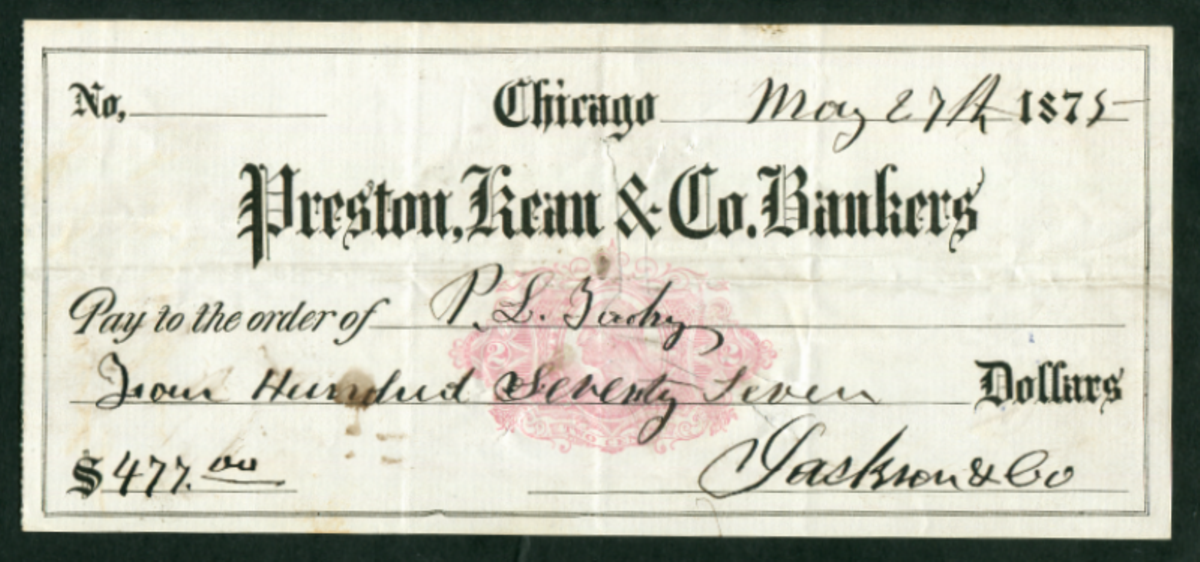 No, Chicago May 27th 1875
Preston, Kean & Co. Bankers
Pay to the order of P. L.
Four Hundred Seventy Seven Dollars
$477.00 Jackson & Co